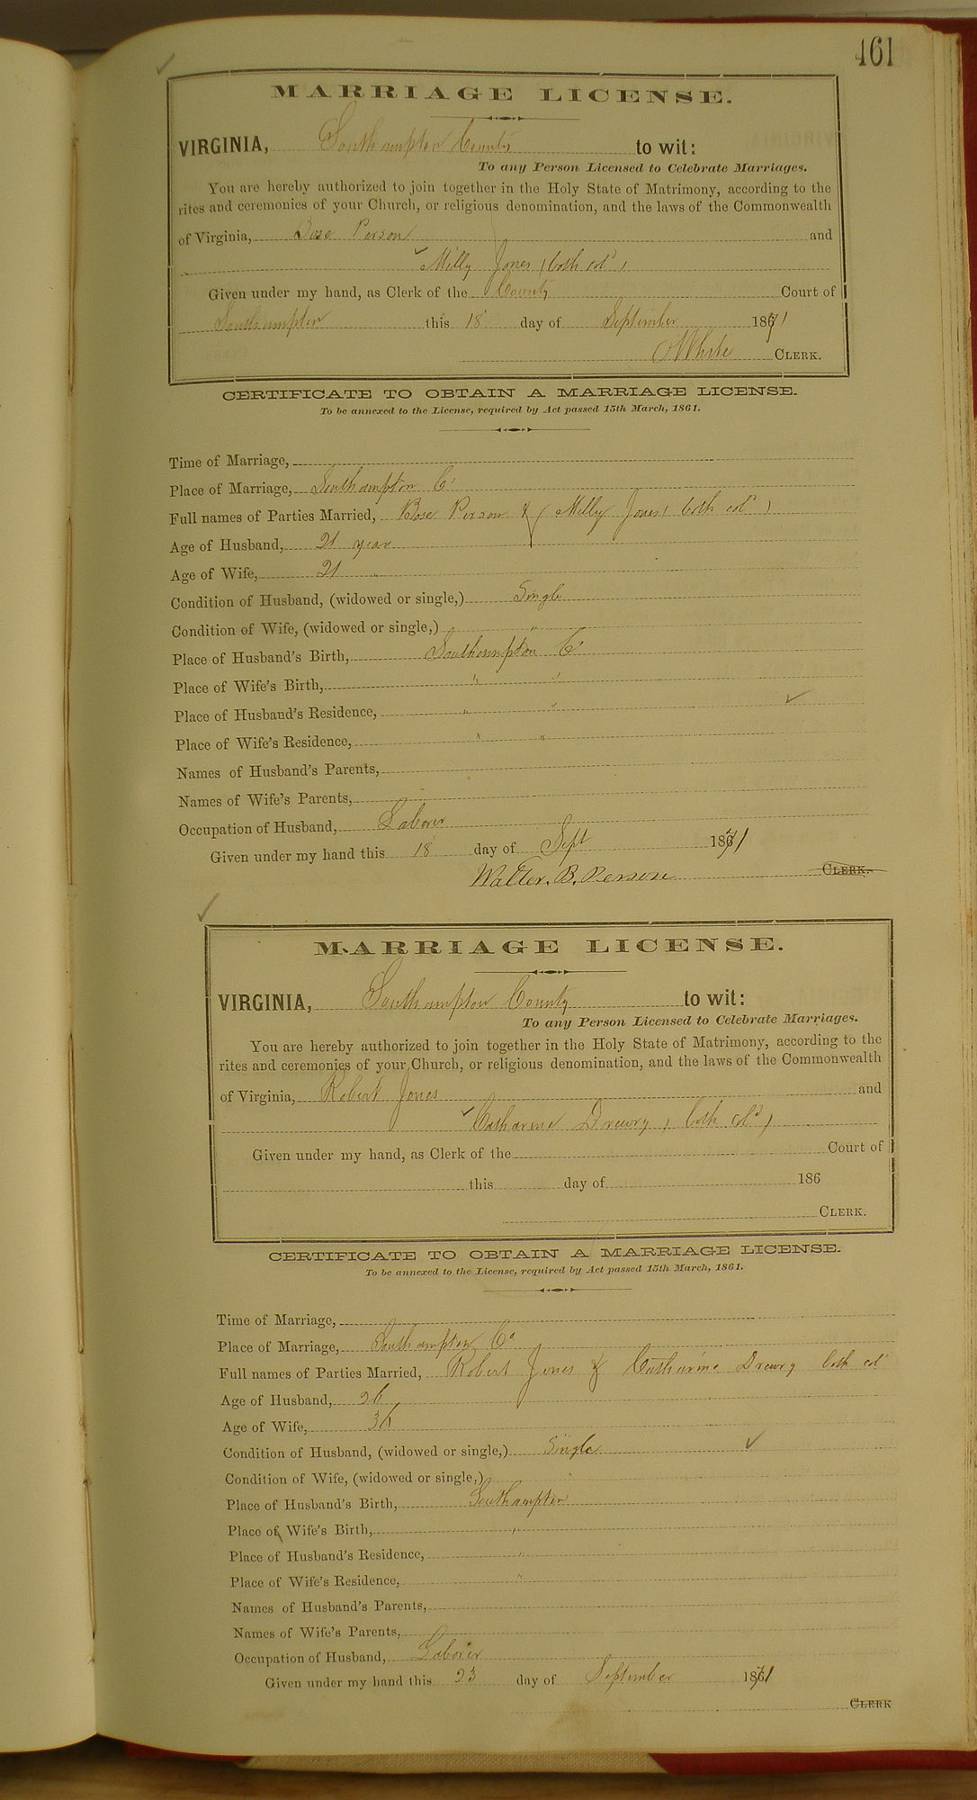 461
MARRIAGE LICENSE.
VIRGINIA, Southampton County to wit:
To any Person Licensed to Celebrate Marriages.
You are hereby authorized to join together in the Holy State of Matrimony, according to the
rites and ceremonies of your Church, or religious denomination, and the laws of the Commonwealth
of Virginia, Bose Person and
Milly Jones (both cold)
Given under my hand, as Clerk of the County Court of
Southampton this 18 day of September 1871
White CLERK.
CERTIFICATE TO OBTAIN A MARRIAGE LICENSE.
To be annexed to the License, required by Act passed 15th March, 1861.
Time of Marriage,
Place of Marriage, Southampton Co
Full names of Parties Married, Bose Person & Milly Jones (both cold)
Age of Husband, 21 year
Age of Wife, 21 "
Condition of Husband, (widowed or single,) Single
Condition of Wife, (widowed or single,) "
Place of Husband's Birth, Southampton Co
Place of Wife's Birth, " "
Place of Husband's Residence, " "
Place of Wife's Residence, " "
Names of Husband's Parents,
Names of Wife's Parents,
Occupation of Husband, Laborer
Given under my hand this 18 day of Sept 1871
Walter. B. Person CLERK.
MARRIAGE LICENSE.
VIRGINIA, Southampton County to wit:
To any Person Licensed to Celebrate Marriages.
You are hereby authorized to join together in the Holy State of Matrimony, according to the
rites and ceremonies of your Church, or religious denomination, and the laws of the Commonwealth
of Virginia, Robert Jones and
Catharine Drewry (both cold)
Given under my hand, as Clerk of the Court of
this day of 186
CLERK.
CERTIFICATE TO OBTAIN A MARRIAGE LICENSE.
To be annexed to the License, required by Act passed 15th March, 1861.
Time of Marriage,
Place of Marriage, Southampton Co
Full names of Parties Married, Robert Jones & Catharine Drewry both col
Age of Husband, 26
Age of Wife, 36
Condition of Husband, (widowed or single,) Single
Condition of Wife, (widowed or single,) "
Place of Husband's Birth, Southampton
Place of Wife's Birth, "
Place of Husband's Residence, "
Place of Wife's Residence, "
Names of Husband's Parents,
Names of Wife's Parents,
Occupation of Husband, Laborer
Given under my hand this 23 day of September 1871
CLERK